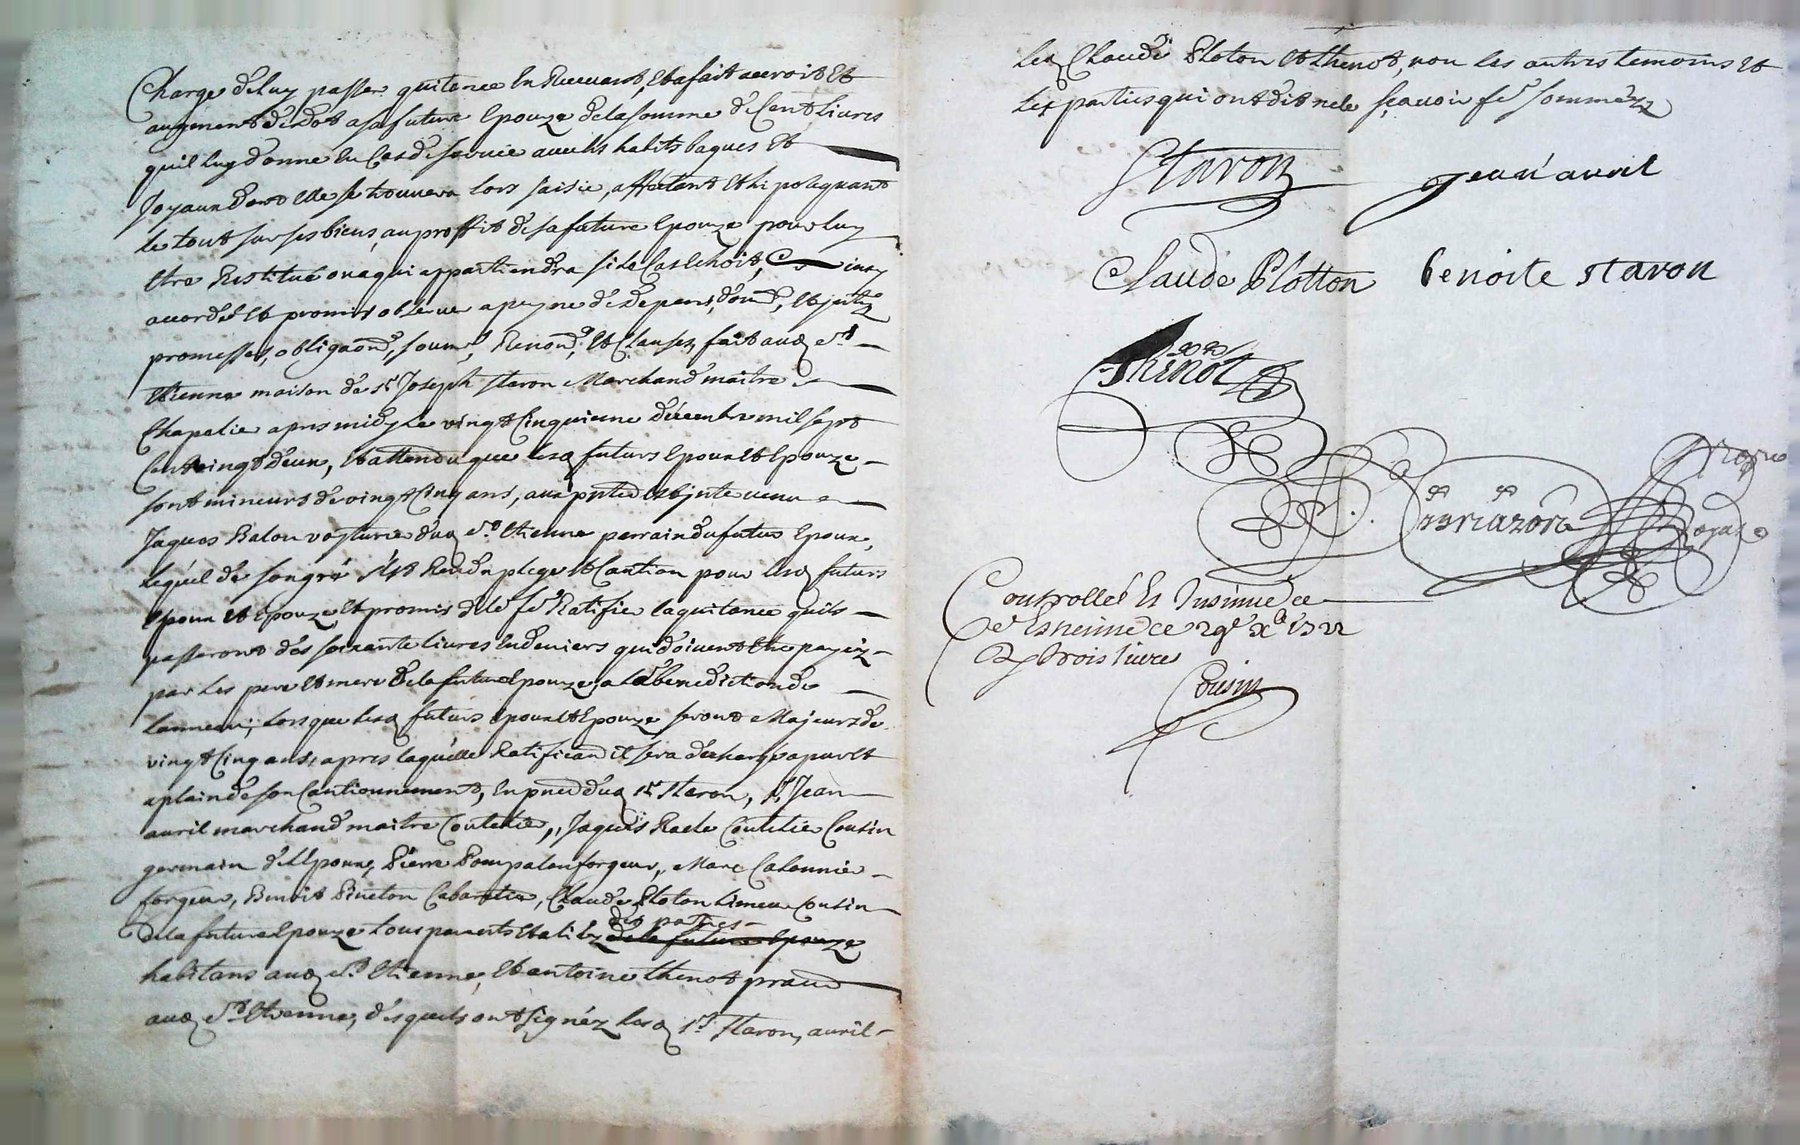 Charge de luy passer quitance En Recevant, Et a fait accroit Et
augment de dot a sa future Epouze de la somme de Cent Livres
quil luy donne En Cas de survie avec les habits bagues Et
Joyaux dont Elle se trouvera lors saisie, affectant Et hipotequant
le tout sur ses biens, au proffit de sa future Epouze pour luy
Etre Restitué ou a qui appartiendra si le Cas Echoit, ainsy
accordé Et promis observer a peyne de depens, dom, Et jnts
promesses, obligaons, soums, Renons, Et Clauses, fait aud st
Etienne maison de sr Joseph staron Marchand maitre
Chapelie apres midy Le vingt Cinquieme décembre mil sept
Cent vingt deux, Et attendu que lesd futurs Epoux Et Epouze
sont mineurs de vingt Cinq ans, aux pntes Est jnteruenu
Jaques Ralon voiturie dud st Etienne parrain du futur Epoux,
lequel de son gré s'est Rendu plege Et Caution pour lesd futurs
Epoux Et Epouze, Et promis de le fe Ratifie la quitance quils
passeront des soixante livres En deniers qui doivent Etre payez
par les pere Et mere de la future Epouze, a la benediction de
lanneau, Lors que lesd futurs Epoux Et Epouze seront Majeurs de
vingt Cinq ans, apres laquelle Ratification il sera décharge a pur Et
a plain de son Cautionnement, En pnce dud sr staron, sr Jean
avril marchand maitre Coutelie, Jaques Coutelie Cousin
germain de l'Epoux, Pierre forgeur, Marc
forgeur, Benoit Cabaretie, Claude Ploton Cousin
de la future Epouze tous parents Et aliez des parties de la future Epouze
habitans aud st Etienne, Et antoine thenot pratn
aud st Etienne, desquels ont signéz lesd srs staron, avril
led Claude Ploton Et thenot, non les autres temoins Et
Les parties qui ont dit ne le sçavoir fe somméz
Staron jean avril
Claude Plotton benoite staron
Thenot
Royal
Controllé Et Insinué a
st Estienne ce 29e xbre 1722
Reçu trois livres
Cousin